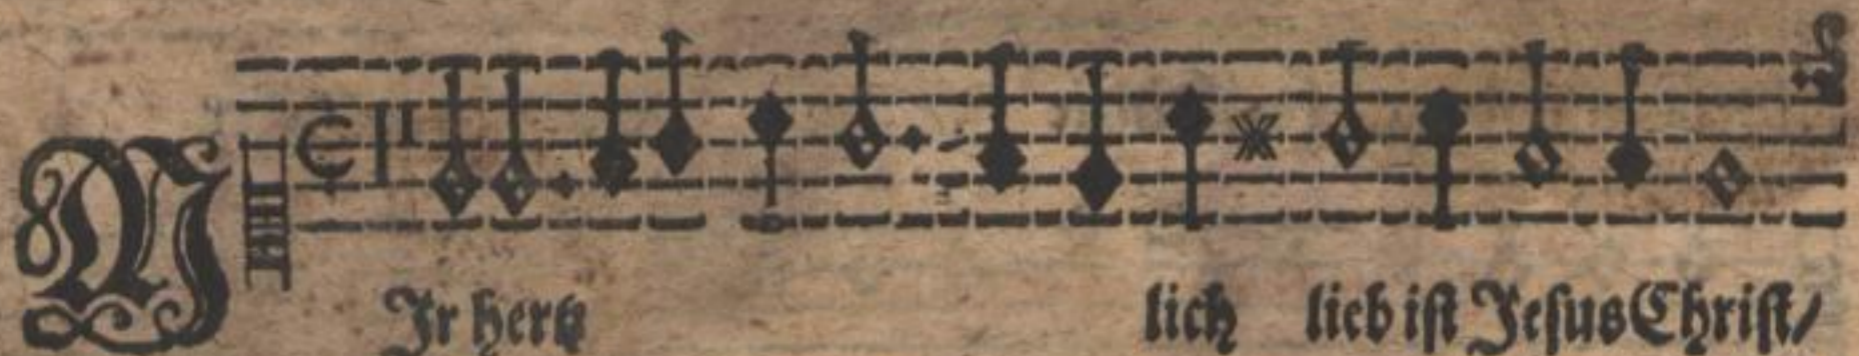 MIr hertz lich lieb ist Jesus Christ/